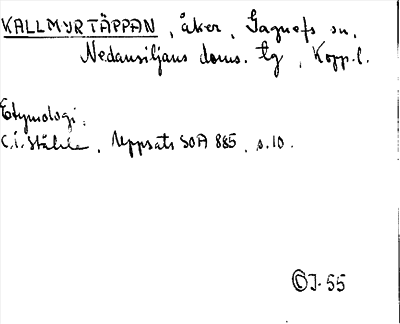 KALLMYRTÄPPAN, åker, Gagnefs sn,
Nedansiljans doms. tg, Kopp.l.
Etymologi:
C.I. Ståhle, Uppsats SOA 885, s. 10.
OJ-55